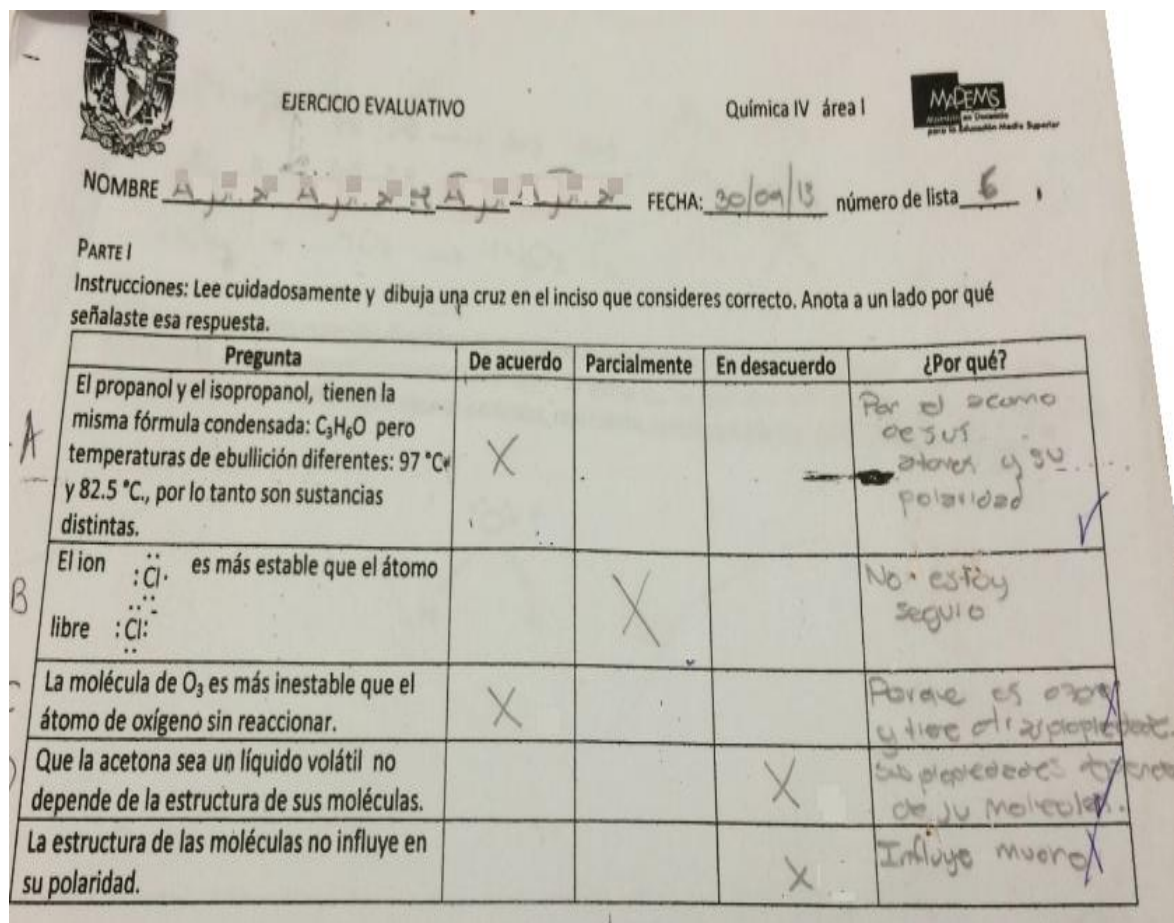 EJERCICIO EVALUATIVO
Química IV área I
MADEMS
para la Educación Media Superior
NOMBRE
FECHA: 30/09/13 número de lista 6
PARTE I
Instrucciones: Lee cuidadosamente y dibuja una cruz en el inciso que consideres correcto. Anota a un lado por qué
señalaste esa respuesta.
Pregunta De acuerdo Parcialmente En desacuerdo ¿Por qué?
A
El propanol y el isopropanol, tienen la
misma fórmula condensada: C₃H₆O pero
temperaturas de ebullición diferentes: 97 °C
y 82.5 °C., por lo tanto son sustancias
distintas.
X
Por el acomo
de sus
y su
polaridad
B
El ion :Cl· es más estable que el átomo
libre :Cl:
X
No estoy
seguro
La molécula de O₃ es más inestable que el
átomo de oxígeno sin reaccionar.
X
Porque es
y tiene
Que la acetona sea un líquido volátil no
depende de la estructura de sus moléculas.
X
sus propiedades
de su
La estructura de las moléculas no influye en
su polaridad.
X
Influye